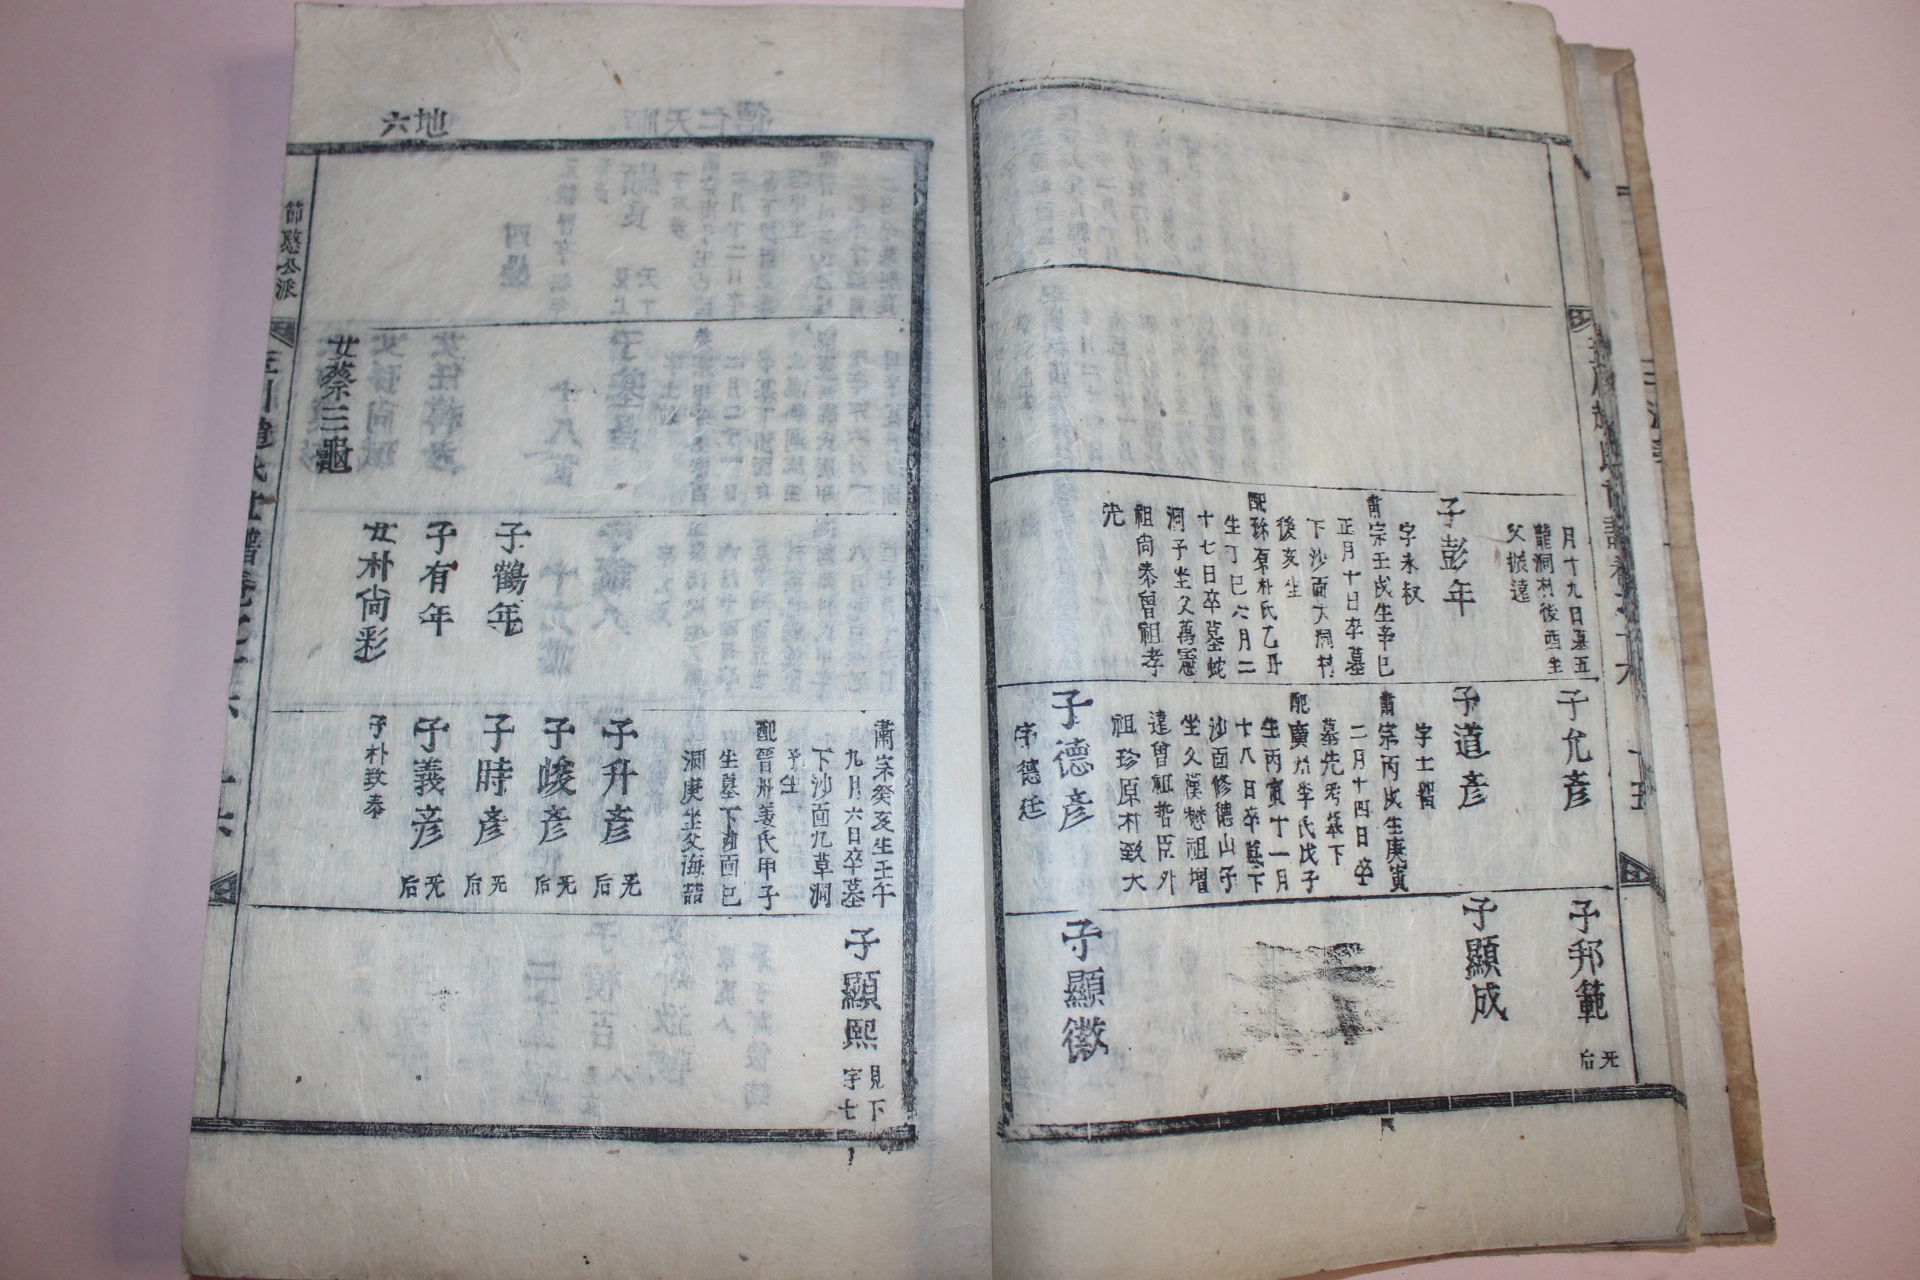 月十九日墓五
龍洞村後酉坐
父振遠
子彭年
字未叔
肅宗壬戌生辛巳
正月十日卒墓
下沙面大洞村
後亥坐
配珎原朴氏乙丑
生丁巳六月二
十七日卒墓蛇
洞子坐父萬憲
祖尚泰曾祖孝
先
子允彦
子道彦
字士習
肅宗丙戌生庚寅
二月十四日卒
墓先考墓下
配廣州李氏戊子
生丙寅十一月
十八日卒墓下
沙面修德山子
坐父漢楙祖增
遠曾祖哲臣外
祖珍原朴致大
子德彦
字德廷
子邦範
无后
子顯成
子顯徽
肅宗癸亥生壬午
九月六日卒墓
下沙面九草洞
子坐
配晉州姜氏甲子
生墓下南面巳
洞庚坐父海喆
子顯熙
見下
字七
子鶴年
子有年
女朴尙彩
子升彦
无后
子峻彦
无后
子時彦
无后
子義彦
无后
子朴致泰
女蔡三龜
地六
節愍公派